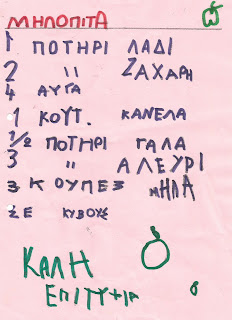 ΜΗΛΟΠΙΤΑ
1 ΠΟΤΗΡΙ ΛΑΔΙ
2 " ΖΑΧΑΡΗ
4 ΑΥΓΑ
1 ΚΟΥΤ. ΚΑΝΕΛΑ
1/2 ΠΟΤΗΡΙ ΓΑΛΑ
3 " ΑΛΕΥΡΙ
3 ΚΟΥΠΕΣ ΜΗΛΑ
ΣΕ ΚΥΒΟΥΣ
ΚΑΛΗ
ΕΠΙΤΥΧΙΑ